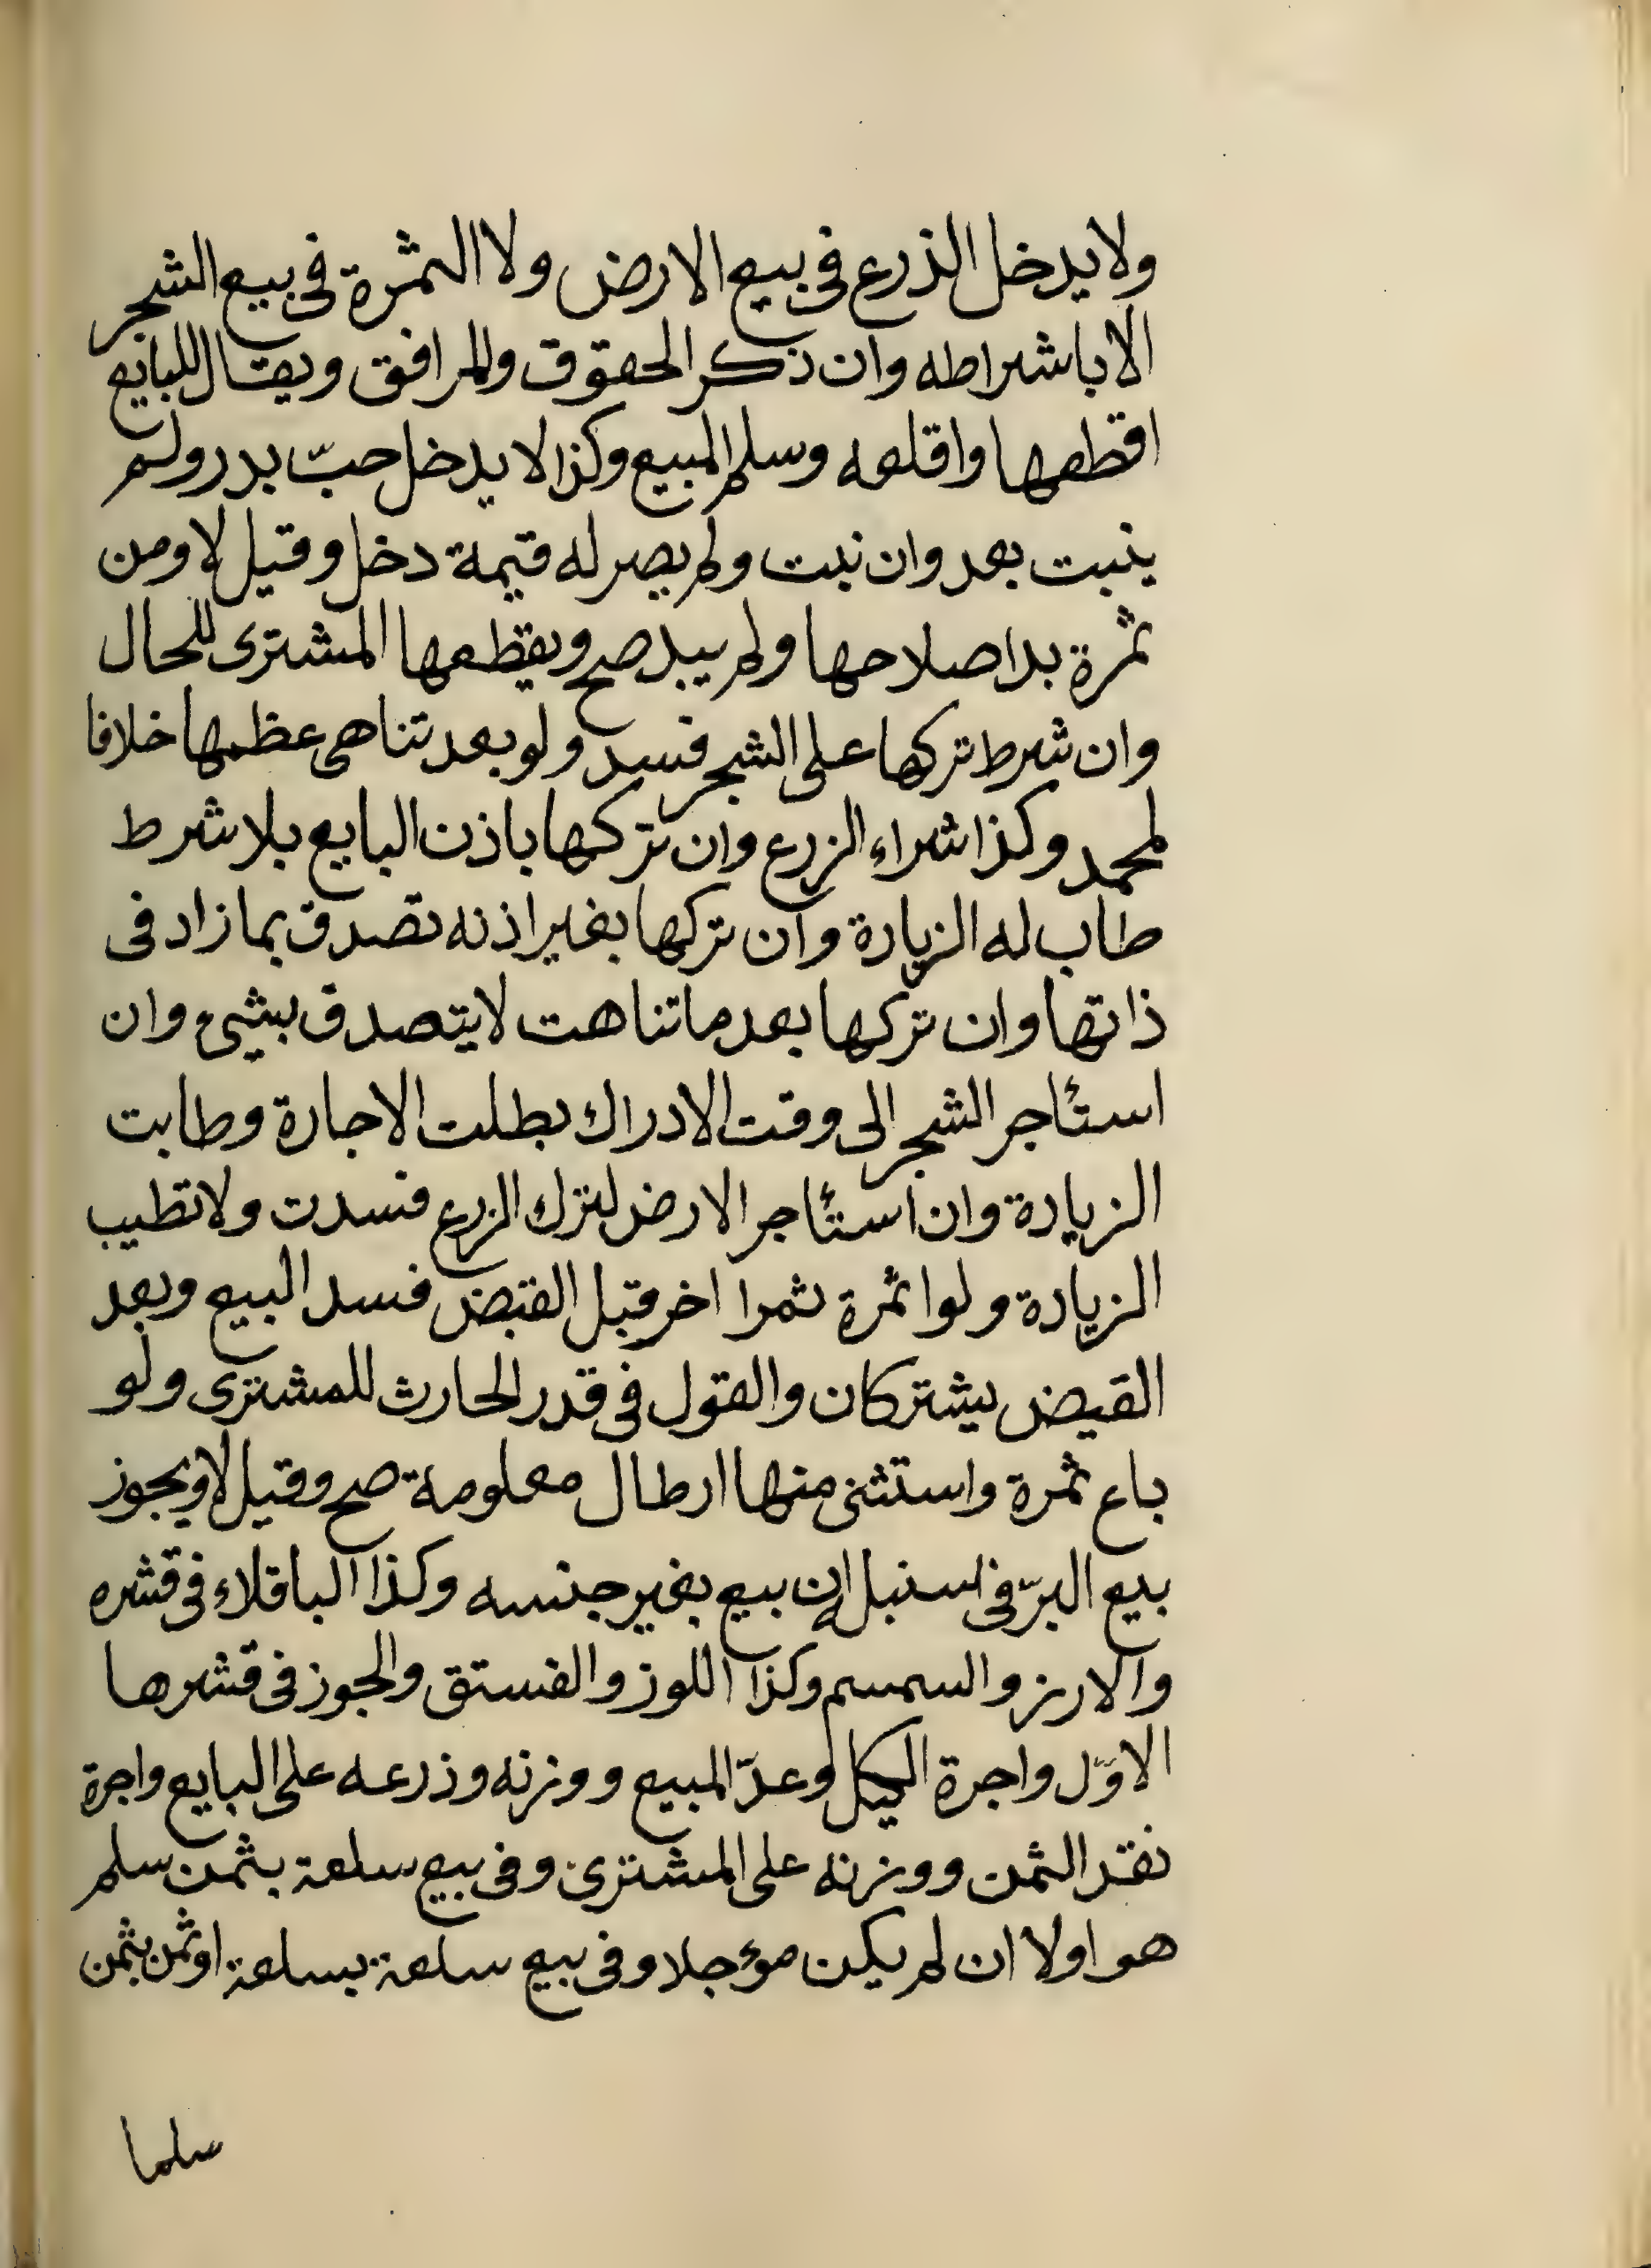 ولا يدخل الذرع فى بيع الارض ولا الثمرة فى بيع الشجر
الا باشراطه وان ذكر الحقوق والمرافق ويقال للبايع
اقطعها واقلعه وسلم المبيع وكذا لا يدخل حبّ بدر ولم
ينبت بعد وان نبت ولم يصر له قيمة دخل وقيل لا ومن
ثمرة بدا صلاحها ولم يبد صح ويقطعها المشترى للحال
وان شرط تركها على الشجر فسد ولو بعد تناهى عظمها خلافا
لمحمد وكذا شراء الزرع وان تركها باذن البايع بلا شرط
طاب له الزيادة وان تركها بغير اذنه تصدق بما زاد فى
ذاتها وان تركها بعد ما تناهت لا يتصدق بشيئ وان
استئاجر الشجر الى وقت الادراك بطلت الاجارة وطابت
الزيادة وان استئاجر الارض لترك الزرع فسدت ولا تطيب
الزيادة ولو اثمرة ثمرا اخر قبل القبض فسد البيع وبعد
القبض يشتركان والقول فى قدر الحارث للمشترى ولو
باع ثمرة واستثنى منها ارطال معلومة صح وقيل لا ويجوز
بيع البرّ فى اسنبل ان بيع بغير جنسه وكذا الباقلاء فى قشره
والارز والسمسم وكذا اللوز والفستق والجوز فى قشرها
الاوّل واجرة الكيل وعدّ المبيع ووزنه وذرعه على البايع واجرة
نقد الثمن ووزنه على المشترى وفى بيع سلعة بثمن سلم
هو اولا ان لم يكن مؤجلا وفى بيع سلعة بسلعة او ثمن بثمن
سلما